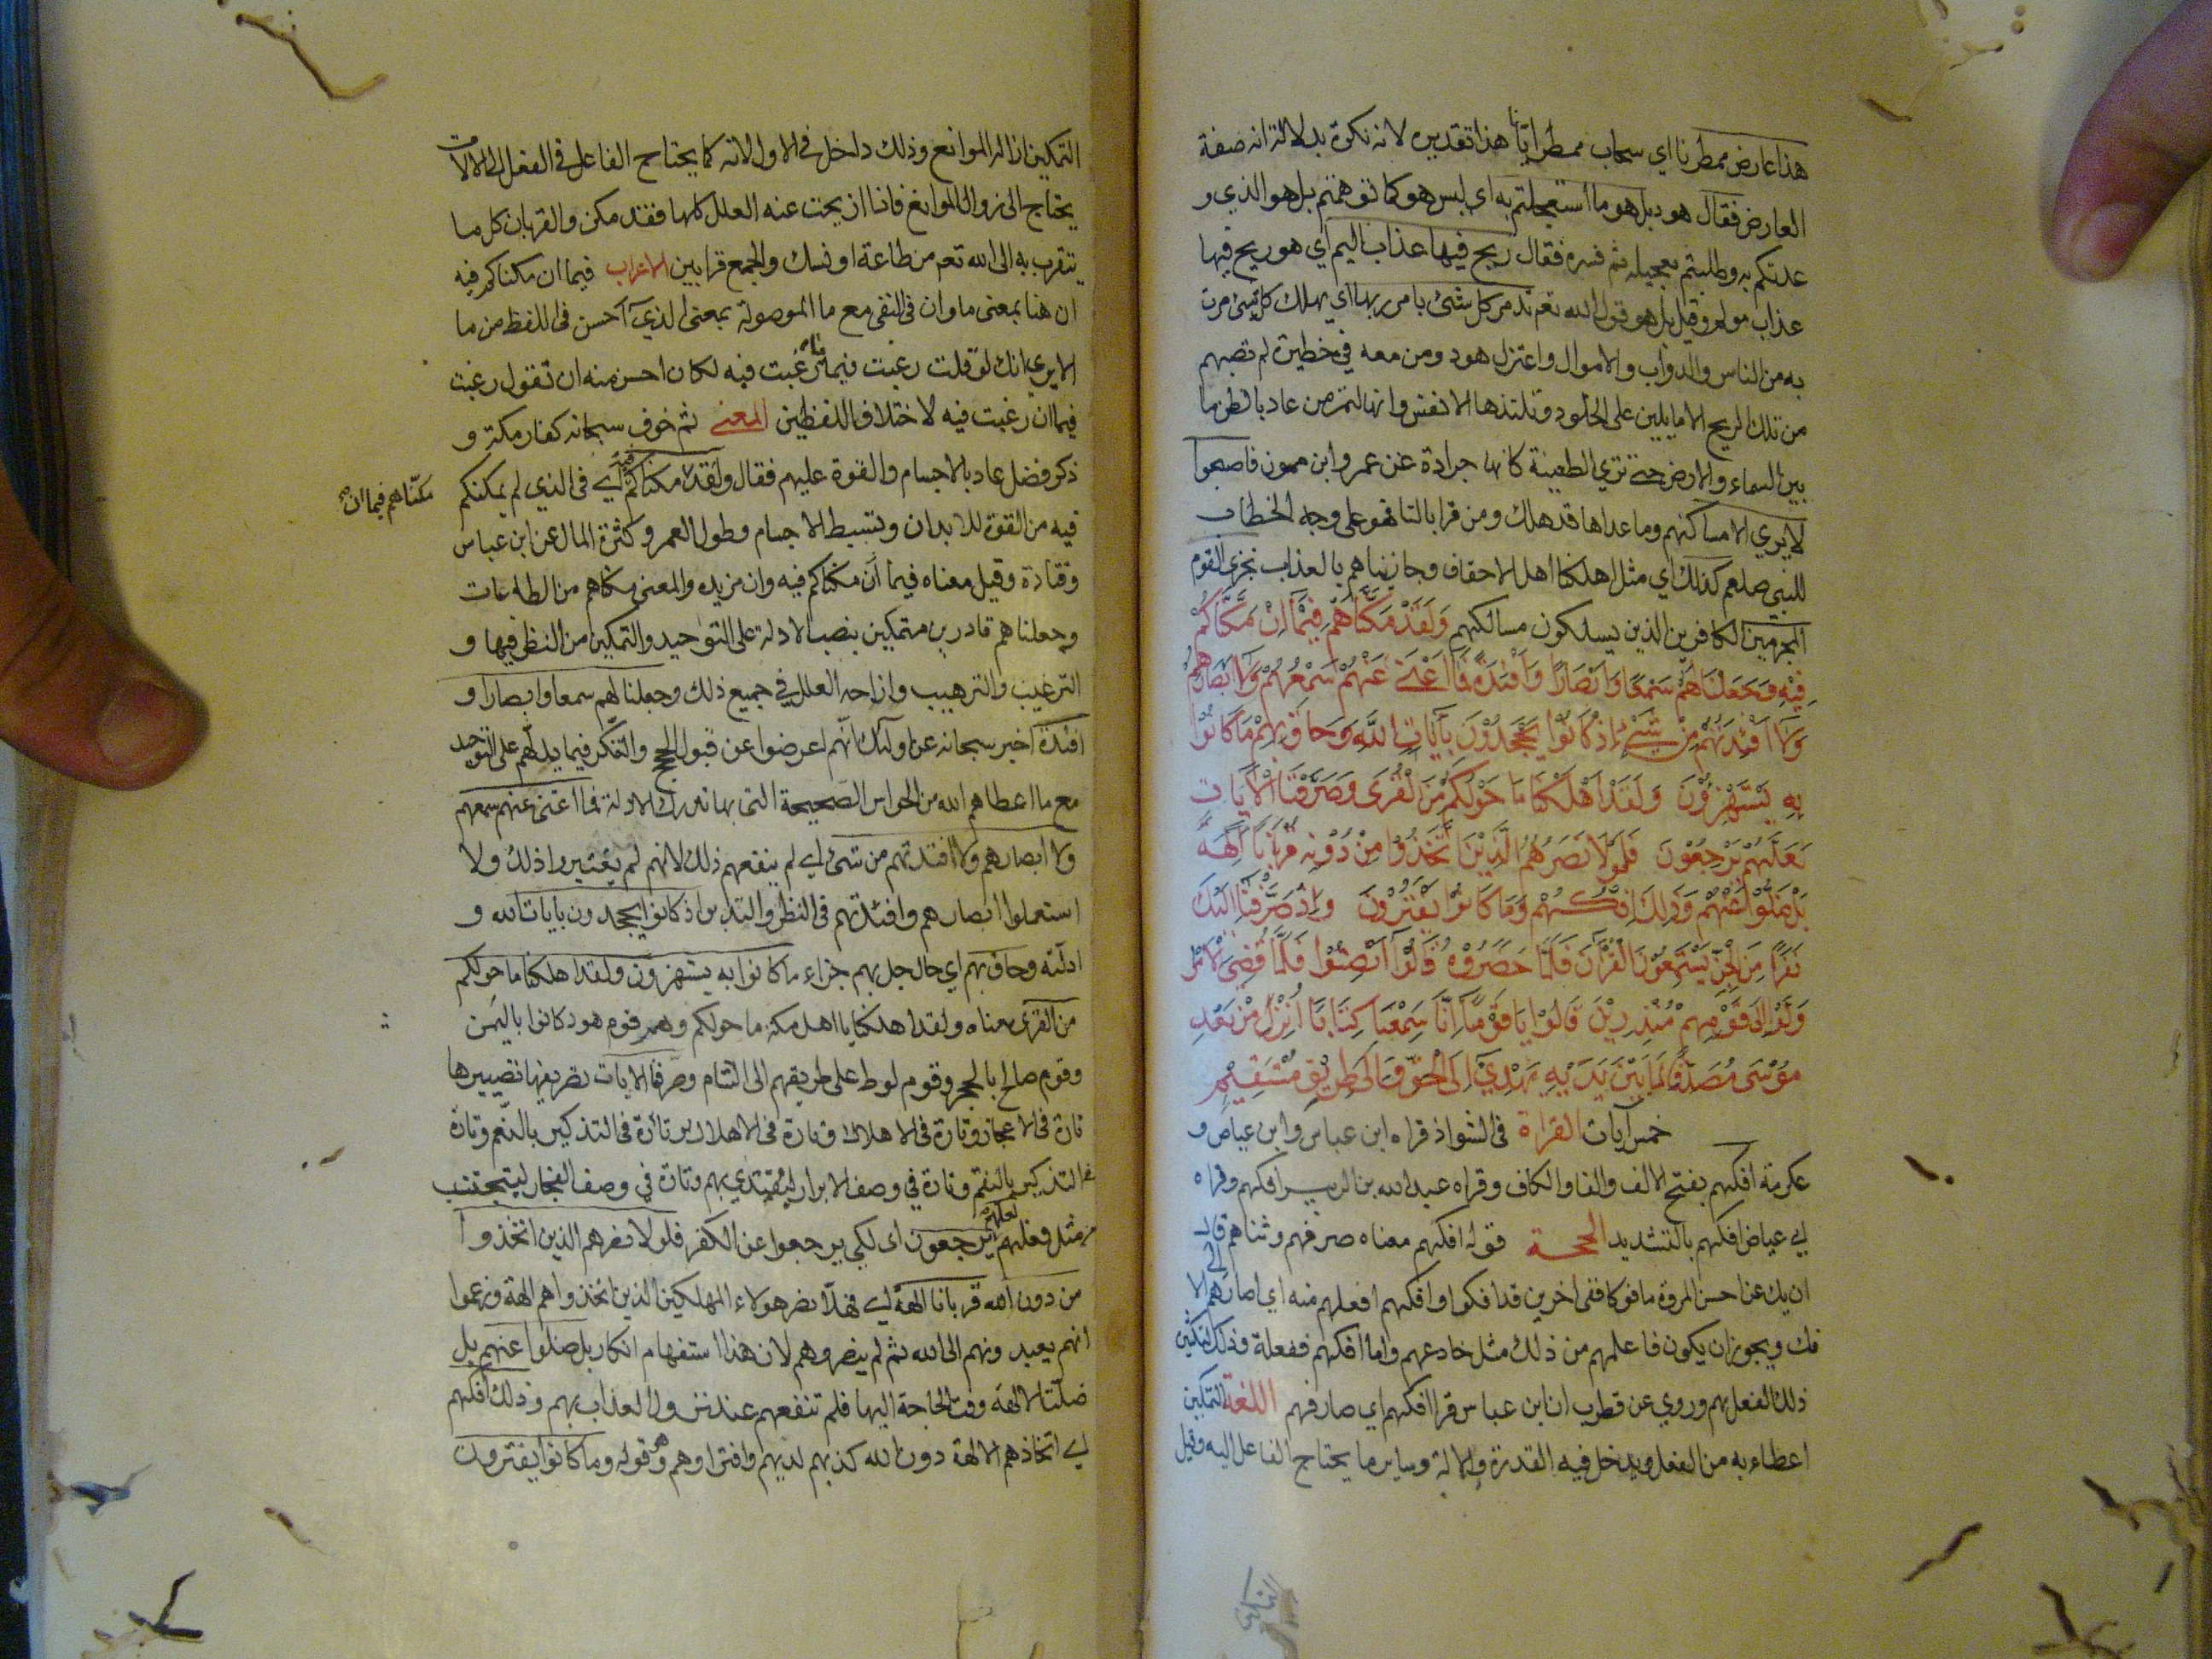 هذا عارض ممطرنا اي سحاب ممطر ايانا هذا تقديره لانه نكرة بدلالة انه صفة
العارض فقال هود بل هو ما استعجلتم به اي ليس هو كما توهمتم بل هو الذي و
عدتكم به وطلبتم تعجيله ثم فسره فقال ريح فيها عذاب اليم اي هو ريح فيها
عذاب مولم وقيل بل هو قول الله تعم تدمر كل شئ بامر ربها اي يهلك كل شئ مرت
به من الناس والدواب والاموال واعتزل هود ومن معه في حظيرة لم تصبهم
من تلك الريح الا ما يلين على الجلود وتلتذها الانفس وانها لتمر من عاد بالظعن ما
بين السماء والارض حتى تري الظعينة كانها جرادة عن عمرو ابن ميمون فاصبحوا
لا يري الا مساكنهم وما عداها قد هلك ومن قرا بالتا فهو على وجه الخطاب
للنبي صلعم كذلك اي مثل اهلكنا اهل الاحقاف وجازيناهم بالعذاب نجزي القوم
المجرمين الكافرين الذين يسلكون مسالكهم وَلَقَدْ مَكَّنَّاهُمْ فِيمَا اِنْ مَكَّنَّاكُمْ
فِيْهِ وَجَعَلْنَا لَهُمْ سَمْعًا وَاَبْصَارًا وَاَفْئِدَةً فَمَا اَغْنَى عَنْهُمْ سَمْعُهُمْ وَلَا اَبْصَارُهُمْ
وَلَا اَفْئِدَتُهُمْ مِنْ شَيْءٍ اِذْ كَانُوْا يَجْحَدُوْنَ بِآيَاتِ اللَّهِ وَحَاقَ بِهِمْ مَا كَانُوْا
بِهِ يَسْتَهْزِؤُنَ وَلَقَدْ اَهْلَكْنَا مَا حَوْلَكُمْ مِنَ الْقُرَى وَصَرَّفْنَا الْآيَاتِ
لَعَلَّهُمْ يَرْجِعُوْنَ فَلَوْلَا نَصَرَهُمُ الَّذِيْنَ اتَّخَذُوْا مِنْ دُوْنِهِ قُرْبَانًا آلِهَةً
بَلْ ضَلُّوْا عَنْهُمْ وَذَلِكَ اِفْكُهُمْ وَمَا كَانُوْا يَفْتَرُوْنَ وَاِذْ صَرَفْنَا اِلَيْكَ
نَفَرًا مِنَ الْجِنِّ يَسْتَمِعُوْنَ الْقُرْآنَ فَلَمَّا حَضَرُوْهُ قَالُوْا اَنْصِتُوْا فَلَمَّا قُضِيَ الْاَمْرُ
وَلَّوْا اِلَى قَوْمِهِمْ مُنْذِرِيْنَ قَالُوْا يَا قَوْمَنَا اِنَّا سَمِعْنَا كِتَابًا اُنْزِلَ مِنْ بَعْدِ
مُوْسَى مُصَدِّقًا لِمَا بَيْنَ يَدَيْهِ يَهْدِيْ اِلَى الْحَقِّ وَاِلَى طَرِيْقٍ مُسْتَقِيْمٍ
خمس آيات القراءة في الشواذ قراه ابن عباس وابن عياض و
عكرمة افكهم بفتح الالف والفا والكاف وقراه عبد الله بن الزبير افكهم وقراه
ابي عياض افكهم بالتشديد الحجة قوله افكهم معناه صرفهم وثناهم قال
ان يك عن احسن المروة مافوكا ففي اخرين قد افكوا وافكهم افعلهم منه اي اصارهم الى الا
فك ويجوز ان يكون فاعلهم من ذلك مثل خادعهم واما افكهم ففعلة وذلك لتكثير
ذلك الفعل بهم وروي عن قطرب ان ابن عباس قرا افكهم اي صارفهم اللغة التمكين
اعطاء به من الفعل ويدخل فيه القدرة والالة وساير ما يحتاج الفاعل اليه وقيل
التمكين ازالة الموانع وذلك داخل في الاول لانه كما يحتاج الفاعل في الفعل الى الالات
يحتاج الى زوال الموانع فاذا ازيحت عنه العلل كلها فقد مكن والقربان كل ما
يتقرب به الى الله تعم من طاعة او نسك والجمع قرابين الاعراب فيما ان مكناكم فيه
ان هنا بمعنى ما وان في النفي مع ما الموصولة بمعنى الذي احسن في اللفظ من ما
الا يرى انك لو قلت رغبت فيما ما رغبت فيه لكان احسن منه ان تقول رغبت
فيما ان رغبت فيه لاختلاف اللفظين المعنى ثم خوف سبحانه كفار مكة و
ذكر فضل عاد بالاجسام والقوة عليهم فقال ولقد مكناكم فيه اي في الذي لم يمكنكم
مكناهم فيما ان
فيه من القوة للابدان وتبسيط الاجسام وطول العمر وكثرة المال عن ابن عباس
وقتادة وقيل معناه فيما ان مكناكم فيه وان مزيده والمعنى مكناهم من الطاعات
وجعلناهم قادرين متمكنين بنصب الادلة على التوحيد والتمكين من النظر فيها و
الترغيب والترهيب وازاحة العلل في جميع ذلك وجعلنا لهم سمعا وابصارا و
افئدة اخبر سبحانه عن اولئك انهم اعرضوا عن قبول الحجج والتفكر فيما يدلهم على التوحيد
مع ما اعطاهم الله من الحواس الصحيحة التي بها تدرك الادلة فما اغنى عنهم سمعهم
ولا ابصارهم ولا افئدتهم من شئ اي لم ينفعهم ذلك لانهم لم يعتبروا ذلك ولا
استعملوا ابصارهم وافئدتهم في النظر والتدبر اذ كانوا يجحدون بايات الله و
ادلته وحاق بهم اي حال حل بهم جزاء ما كانوا به يستهزؤن ولقد اهلكنا ما حولكم
من القرى معناه ولقد اهلكنا يا اهل مكة ما حولكم وهم قوم هود كانوا باليمن
وقوم صالح بالحجر وقوم لوط على طريقهم الى الشام وصرفنا الايات تصريفها تصييرها
تارة في الاعجاز وتارة في الاهلاك وتارة في الاهلاك وتارة في التذكير بالنعم وتارة
في التذكير بالنقم وتارة في وصف الابرار ليقتدي بهم وتارة في وصف الفجار ليتجنب
مثل فعلهم لعلهم يرجعون اى لكي يرجعوا عن الكفر فلولا نصرهم الذين اتخذوا
من دون الله قربانا الهة اي فهلا نصر هولاء المهلكين الذين اتخذوهم الهة وزعموا
انهم يعبدونهم الى الله ثم لم ينصروهم لان هذا استفهام انكار بل ضلوا عنهم بل
ضلت الالهة وقت الحاجة اليها فلم تنفعهم عند نزول العذاب بهم وذلك افكهم
اي اتخاذهم الالهة دون الله كذبهم لديهم وافتراوهم وهو قوله وما كانوا يفترون